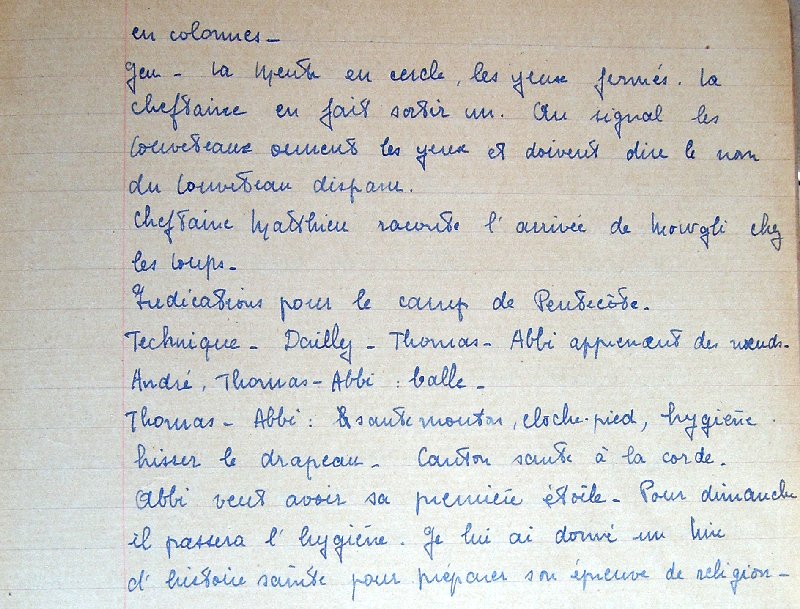 en colonnes -
Jeu - La Meute en cercle, les yeux fermés. La
cheftaine en fait sortir un. Au signal les
louveteaux ouvrent les yeux et doivent dire le nom
du louveteau disparu.
Cheftaine Matthieu raconte l'arrivée de Mowgli chez
les loups -
Indications pour le camp de Pentecôte.
Technique - Dailly - Thomas - Abbi apprennent des nœuds -
André, Thomas - Abbi : balle -
Thomas - Abbi : saute mouton, cloche-pied, hygiène.
hisser le drapeau - Canton saute à la corde.
Abbi veut avoir sa première étoile - Pour dimanche
il passera l'hygiène. Je lui ai donné un livre
d'histoire sainte pour préparer son épreuve de religion -